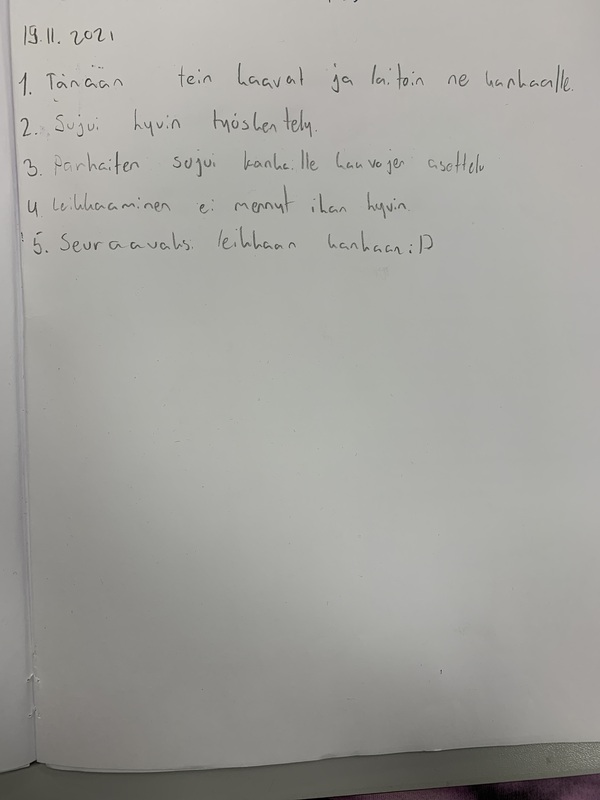 19.11.2021
1. Tänään tein kaavat ja laitoin ne kankaalle.
2. Sujui hyvin työskentely.
3. Parhaiten sujui kankalle kaavojen asettelu
4. Leikkaaminen ei mennyt ihan hyvin.
5. Seuraavaks. leikkaan kankaan :D